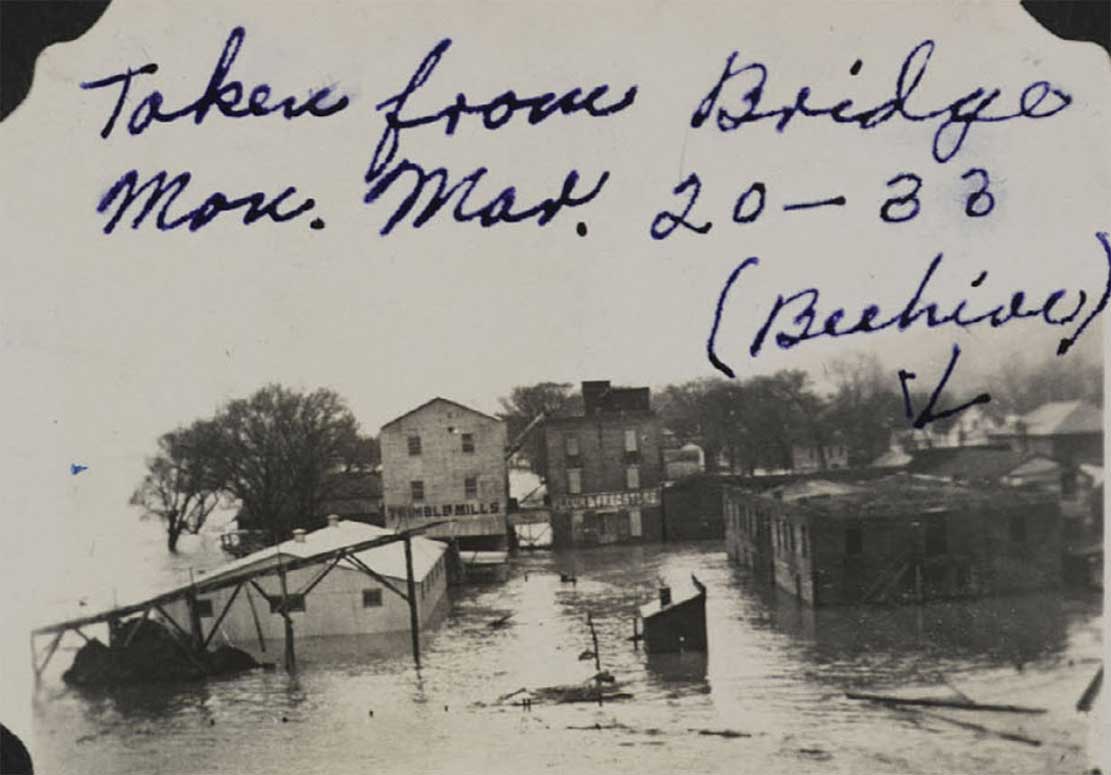 Taken from Bridge
Mon. Mar. 20-33
(Beehive)
TRIMBLE MILLS
FLOUR & FEED STORE